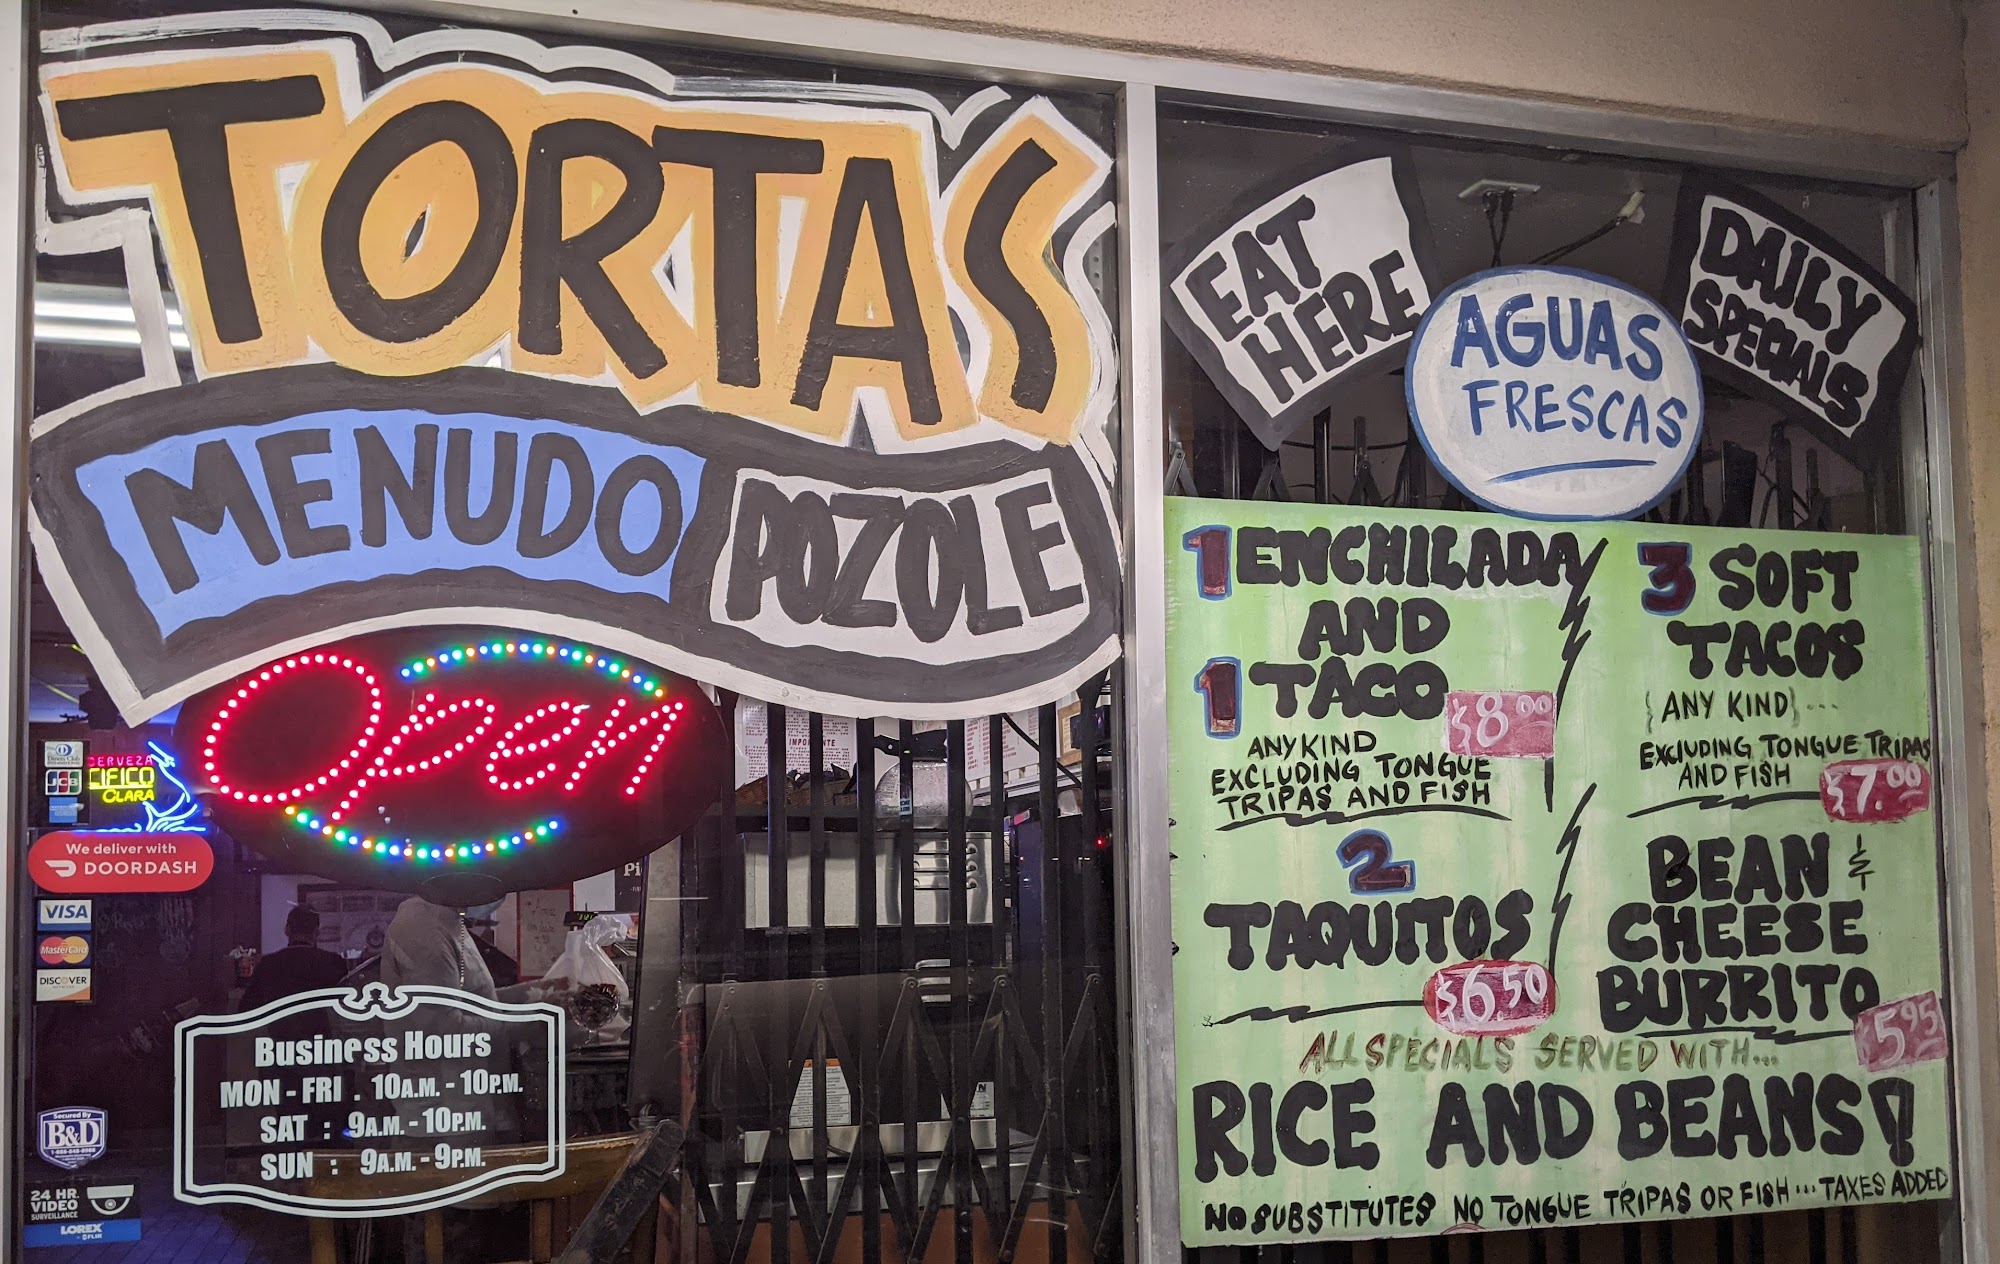 TORTAS
MENUDO
POZOLE
Open
CERVEZA
CIFICO
CLARA
Diners Club
JCB
We deliver with
DOORDASH
VISA
MasterCard
DISCOVER
Business Hours
MON - FRI . 10A.M. - 10P.M.
SAT : 9A.M. - 10P.M.
SUN : 9A.M. - 9P.M.
Secured By
B&D
24 HR.
VIDEO
SURVEILLANCE
LOREX
IMPORTANTE
EAT
HERE
AGUAS
FRESCAS
DAILY
SPECIALS
1 ENCHILADA
AND
1 TACO
$8.00
ANY KIND
EXCLUDING TONGUE
TRIPAS AND FISH
2
TAQUITOS
$6.50
3 SOFT
TACOS
{ANY KIND}...
EXCLUDING TONGUE TRIPAS
AND FISH
$7.00
BEAN &
CHEESE
BURRITO
$5.95
ALL SPECIALS SERVED WITH...
RICE AND BEANS!
NO SUBSTITUTES NO TONGUE TRIPAS OR FISH... TAXES ADDED